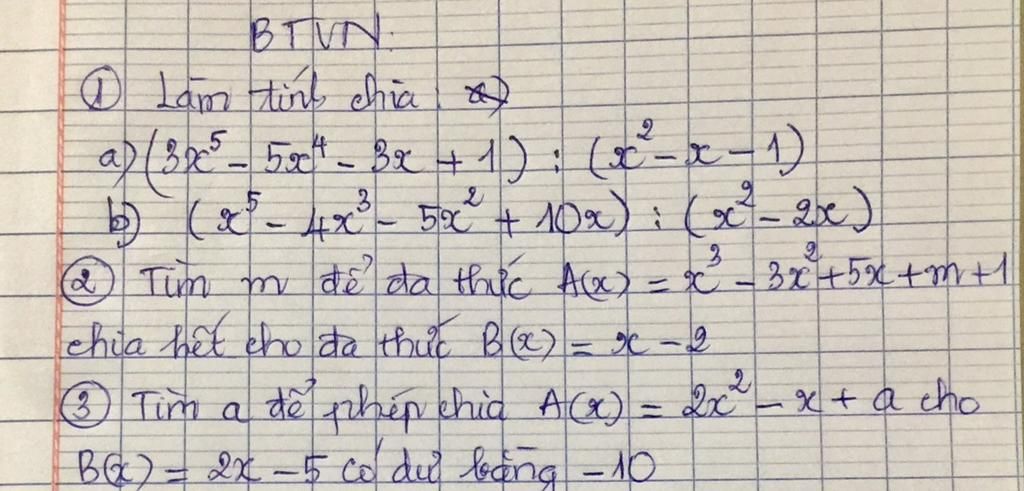 BTVN.
① Làm tính chia
a) (3x⁵ - 5x⁴ - 3x + 1) : (x² - x - 1)
b) (x⁵ - 4x³ - 5x² + 10x) : (x² - 2x)
② Tìm m để đa thức A(x) = x³ - 3x² + 5x + m + 1
chia hết cho đa thức B(x) = x - 2
③ Tìm a để phép chia A(x) = 2x² - x + a cho
B(x) = 2x - 5 có dư bằng -10